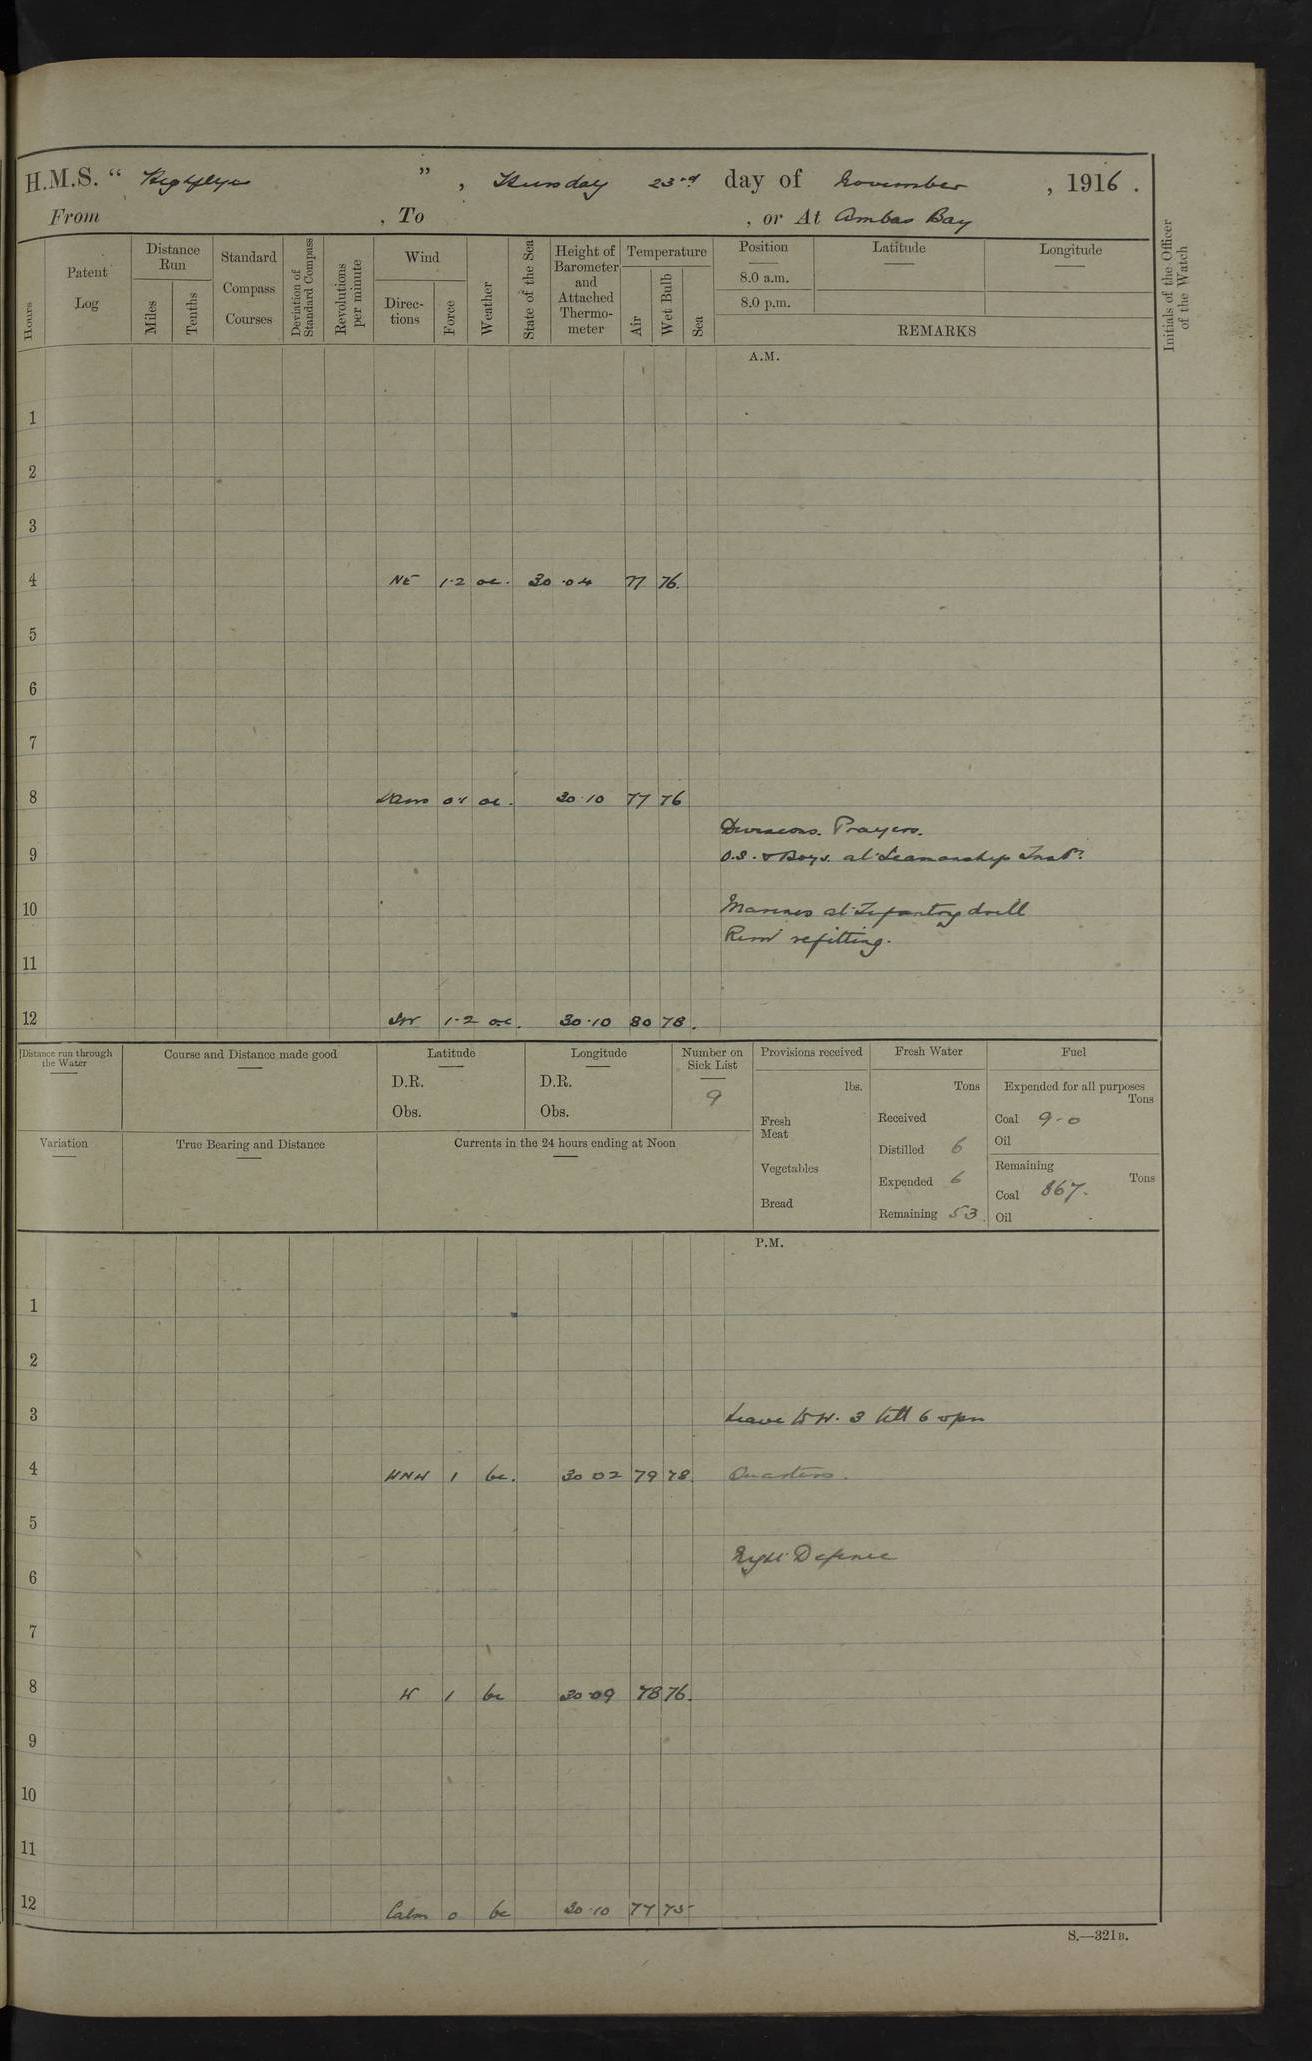 H.M.S. “ Highflyer ” , Thursday 23rd day of November , 1916 .
From , To , or At Ambas Bay
Hours
Patent Log
Distance Run
Miles
Tenths
Standard Compass Courses
Deviation of Standard Compass
Revolutions per minute
Wind
Directions
Force
Weather
State of the Sea
Height of Barometer and Attached Thermometer
Temperature
Air
Wet Bulb
Sea
Position
8.0 a.m.
8.0 p.m.
Latitude
Longitude
REMARKS
Initials of the Officer of the Watch
A.M.
1
2
3
4 NE 1·2 oc. 30·04 77 76.
5
6
7
8 oc. 30·10 77 76
Divisions. Prayers.
9 O.S. & Boys at Seamanship Inst.
10 Marines at Infantry drill
Remr refitting.
11
12 SW 1·2 oc. 30·10 80 78.
Distance run through the Water
Course and Distance made good
Latitude
D.R.
Obs.
Longitude
D.R.
Obs.
Number on Sick List
9
Provisions received
lbs.
Fresh Meat
Vegetables
Bread
Fresh Water
Tons
Received
Distilled 6
Expended 6
Remaining 53.
Fuel
Expended for all purposes
Tons
Coal 9-0
Oil
Remaining
Tons
Coal 867.
Oil
Variation
True Bearing and Distance
Currents in the 24 hours ending at Noon
P.M.
1
2
3 Leave to W. 3 till 6 pm
4 WNW 1 bc. 30 02 79 78. Quarters.
5
Night Defence
6
7
8 W 1 bc 30·09 78 76.
9
10
11
12 Calm 0 bc 30·10 77 75
S.—321B.